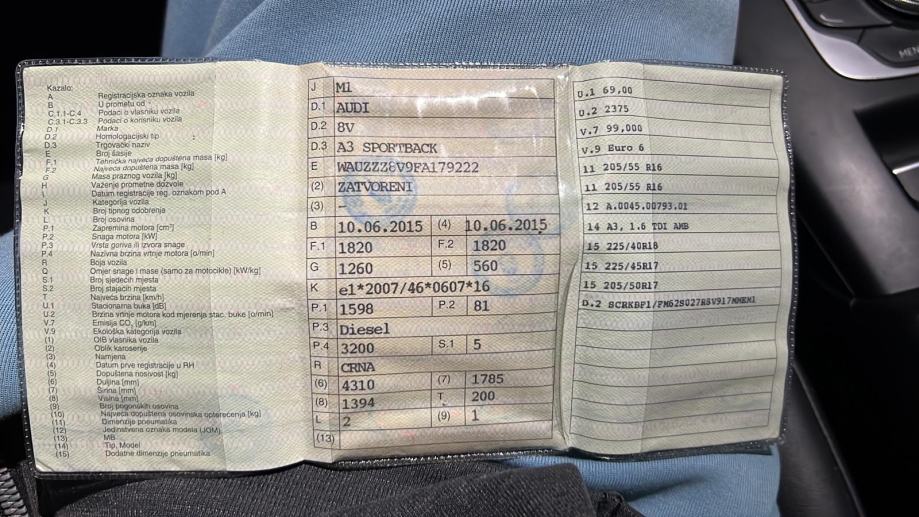 Kazalo:
A Registracijska oznaka vozila
B U prometu od -
C.1.1-C.4 Podaci o vlasniku vozila
C.3.1-C.3.3 Podaci o korisniku vozila
D.1 Marka
D.2 Homologacijski tip
D.3 Trgovački naziv
E Broj šasije
F.1 Tehnička najveća dopuštena masa [kg]
F.2 Najveća dopuštena masa [kg]
G Masa praznog vozila [kg]
H Važenje prometne dozvole
I Datum registracije reg. oznakom pod A
J Kategorija vozila
K Broj tipnog odobrenja
L Broj osovina
P.1 Zapremina motora [cm³]
P.2 Snaga motora [kW]
P.3 Vrsta goriva ili izvora snage
P.4 Nazivna brzina vrtnje motora [o/min]
R Boja vozila
Q Omjer snage i mase (samo za motocikle) [kW/kg]
S.1 Broj sjedećih mjesta
S.2 Broj stajaćih mjesta
T Najveća brzina [km/h]
U.1 Stacionarna buka [dB]
U.2 Brzina vrtnje motora kod mjerenja stac. buke [o/min]
V.7 Emisija CO₂ [g/km]
V.9 Ekološka kategorija vozila
(1) OIB vlasnika vozila
(2) Oblik karoserije
(3) Namjena
(4) Datum prve registracije u RH
(5) Dopuštena nosivost [kg]
(6) Duljina [mm]
(7) Širina [mm]
(8) Visina [mm]
(9) Broj pogonskih osovina
(10) Najveća dopuštena osovinska opterećenja [kg]
(11) Dimenzije pneumatika
(12) Jedinstvena oznaka modela (JOM)
(13) MB
(14) Tip, Model
(15) Dodatne dimenzije pneumatika
J M1
D.1 AUDI
D.2 8V
D.3 A3 SPORTBACK
E WAUZZZ8V9FA179222
(2) ZATVORENI
(3) -
B 10.06.2015 (4) 10.06.2015
F.1 1820 F.2 1820
G 1260 (5) 560
K e1*2007/46*0607*16
P.1 1598 P.2 81
P.3 Diesel
P.4 3200 S.1 5
R CRNA
(6) 4310 (7) 1785
(8) 1394 T 200
L 2 (9) 1
(13)
U.1 69,00
U.2 2375
V.7 99,000
V.9 Euro 6
11 205/55 R16
11 205/55 R16
12 A.0045.00793.01
14 A3, 1.6 TDI AMB
15 225/40R18
15 225/45R17
15 205/50R17
D.2
MEN